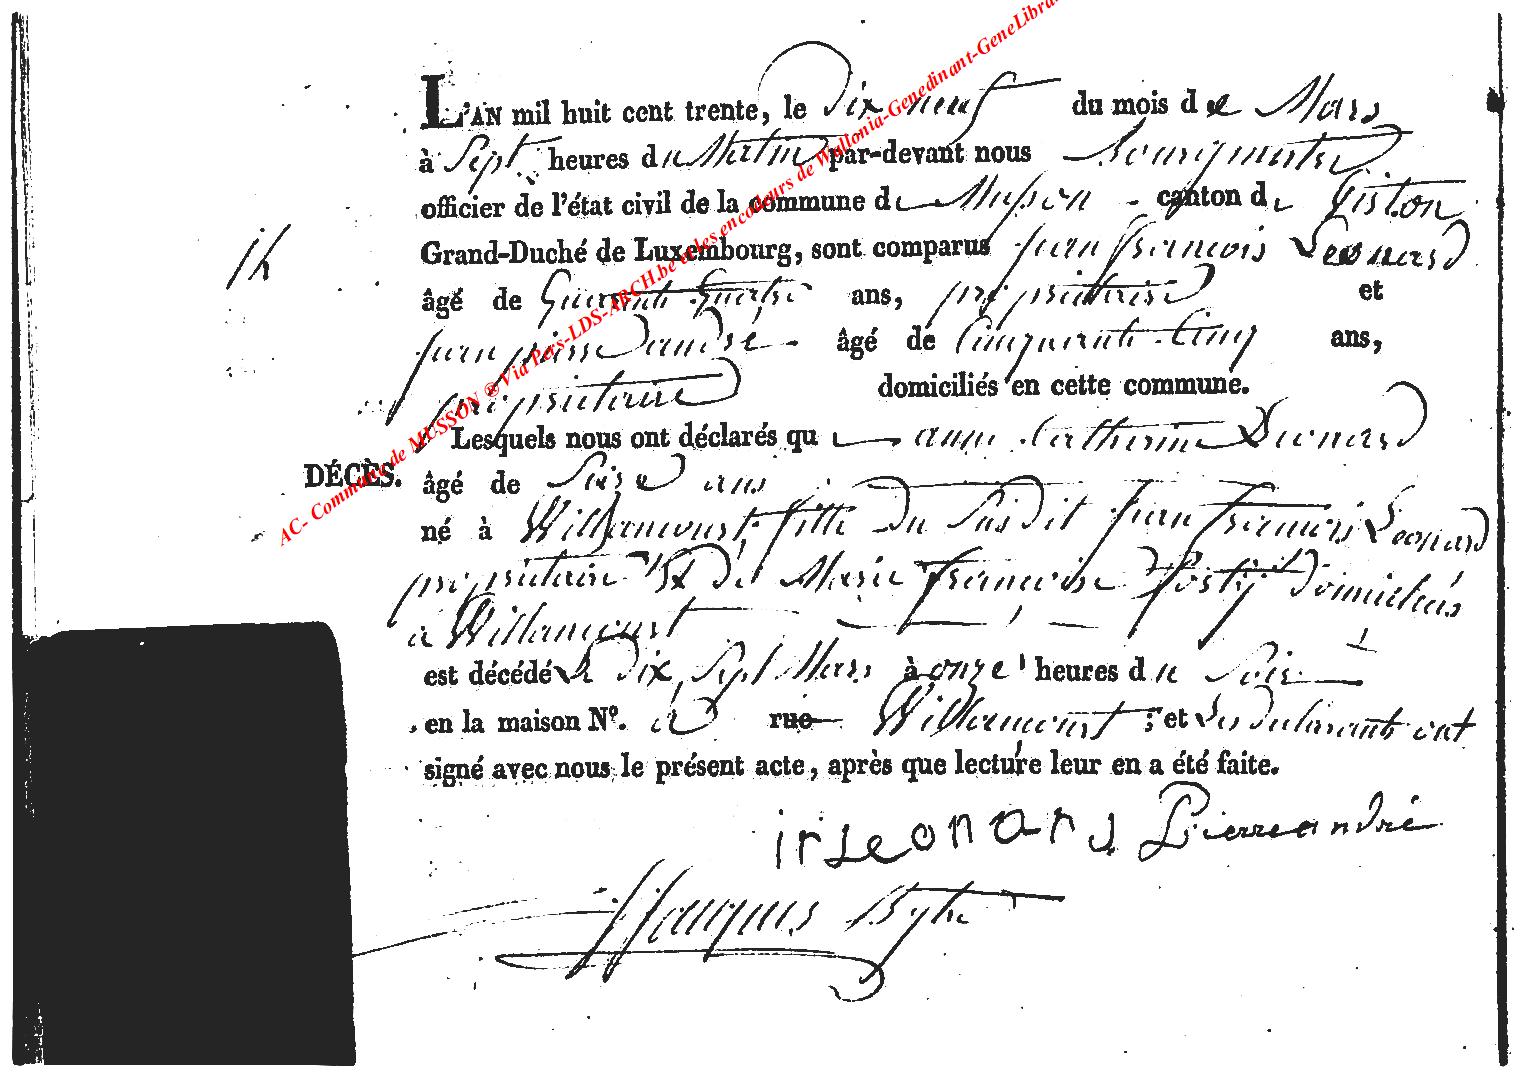 L'AN mil huit cent trente, le Dix neuf du mois de Mars
à Sept heures du Matin par-devant nous Bourgmestre
officier de l'état civil de la commune de Musson canton de Virton
Grand-Duché de Luxembourg, sont comparus Jean françois Leonard
âgé de Quarante Quatre ans, propriétaire et
Jean pierre andré âgé de Cinquante Cinq ans,
propriétaire domiciliés en cette commune.
Lesquels nous ont déclarés que anne Catherine Leonard
DÉCÈS.
âgé de Seize ans
né à Willancourt fille Du Susdit Jean françois Leonard
propriétaire Et De Marie françoise Domiciliés
à Willancourt
est décédé le Dix Sept Mars à onze heures du Soir
en la maison Nº. à rue Willancourt ; et Les Déclarants ont
signé avec nous le présent acte, après que lecture leur en a été faite.
Leonard Pierre andré
Jacques
AC- Commune de MUSSON ® Via Pers-LDS-ARCH.be et les encodeurs de Wallonia-Genedinant-GeneLibra